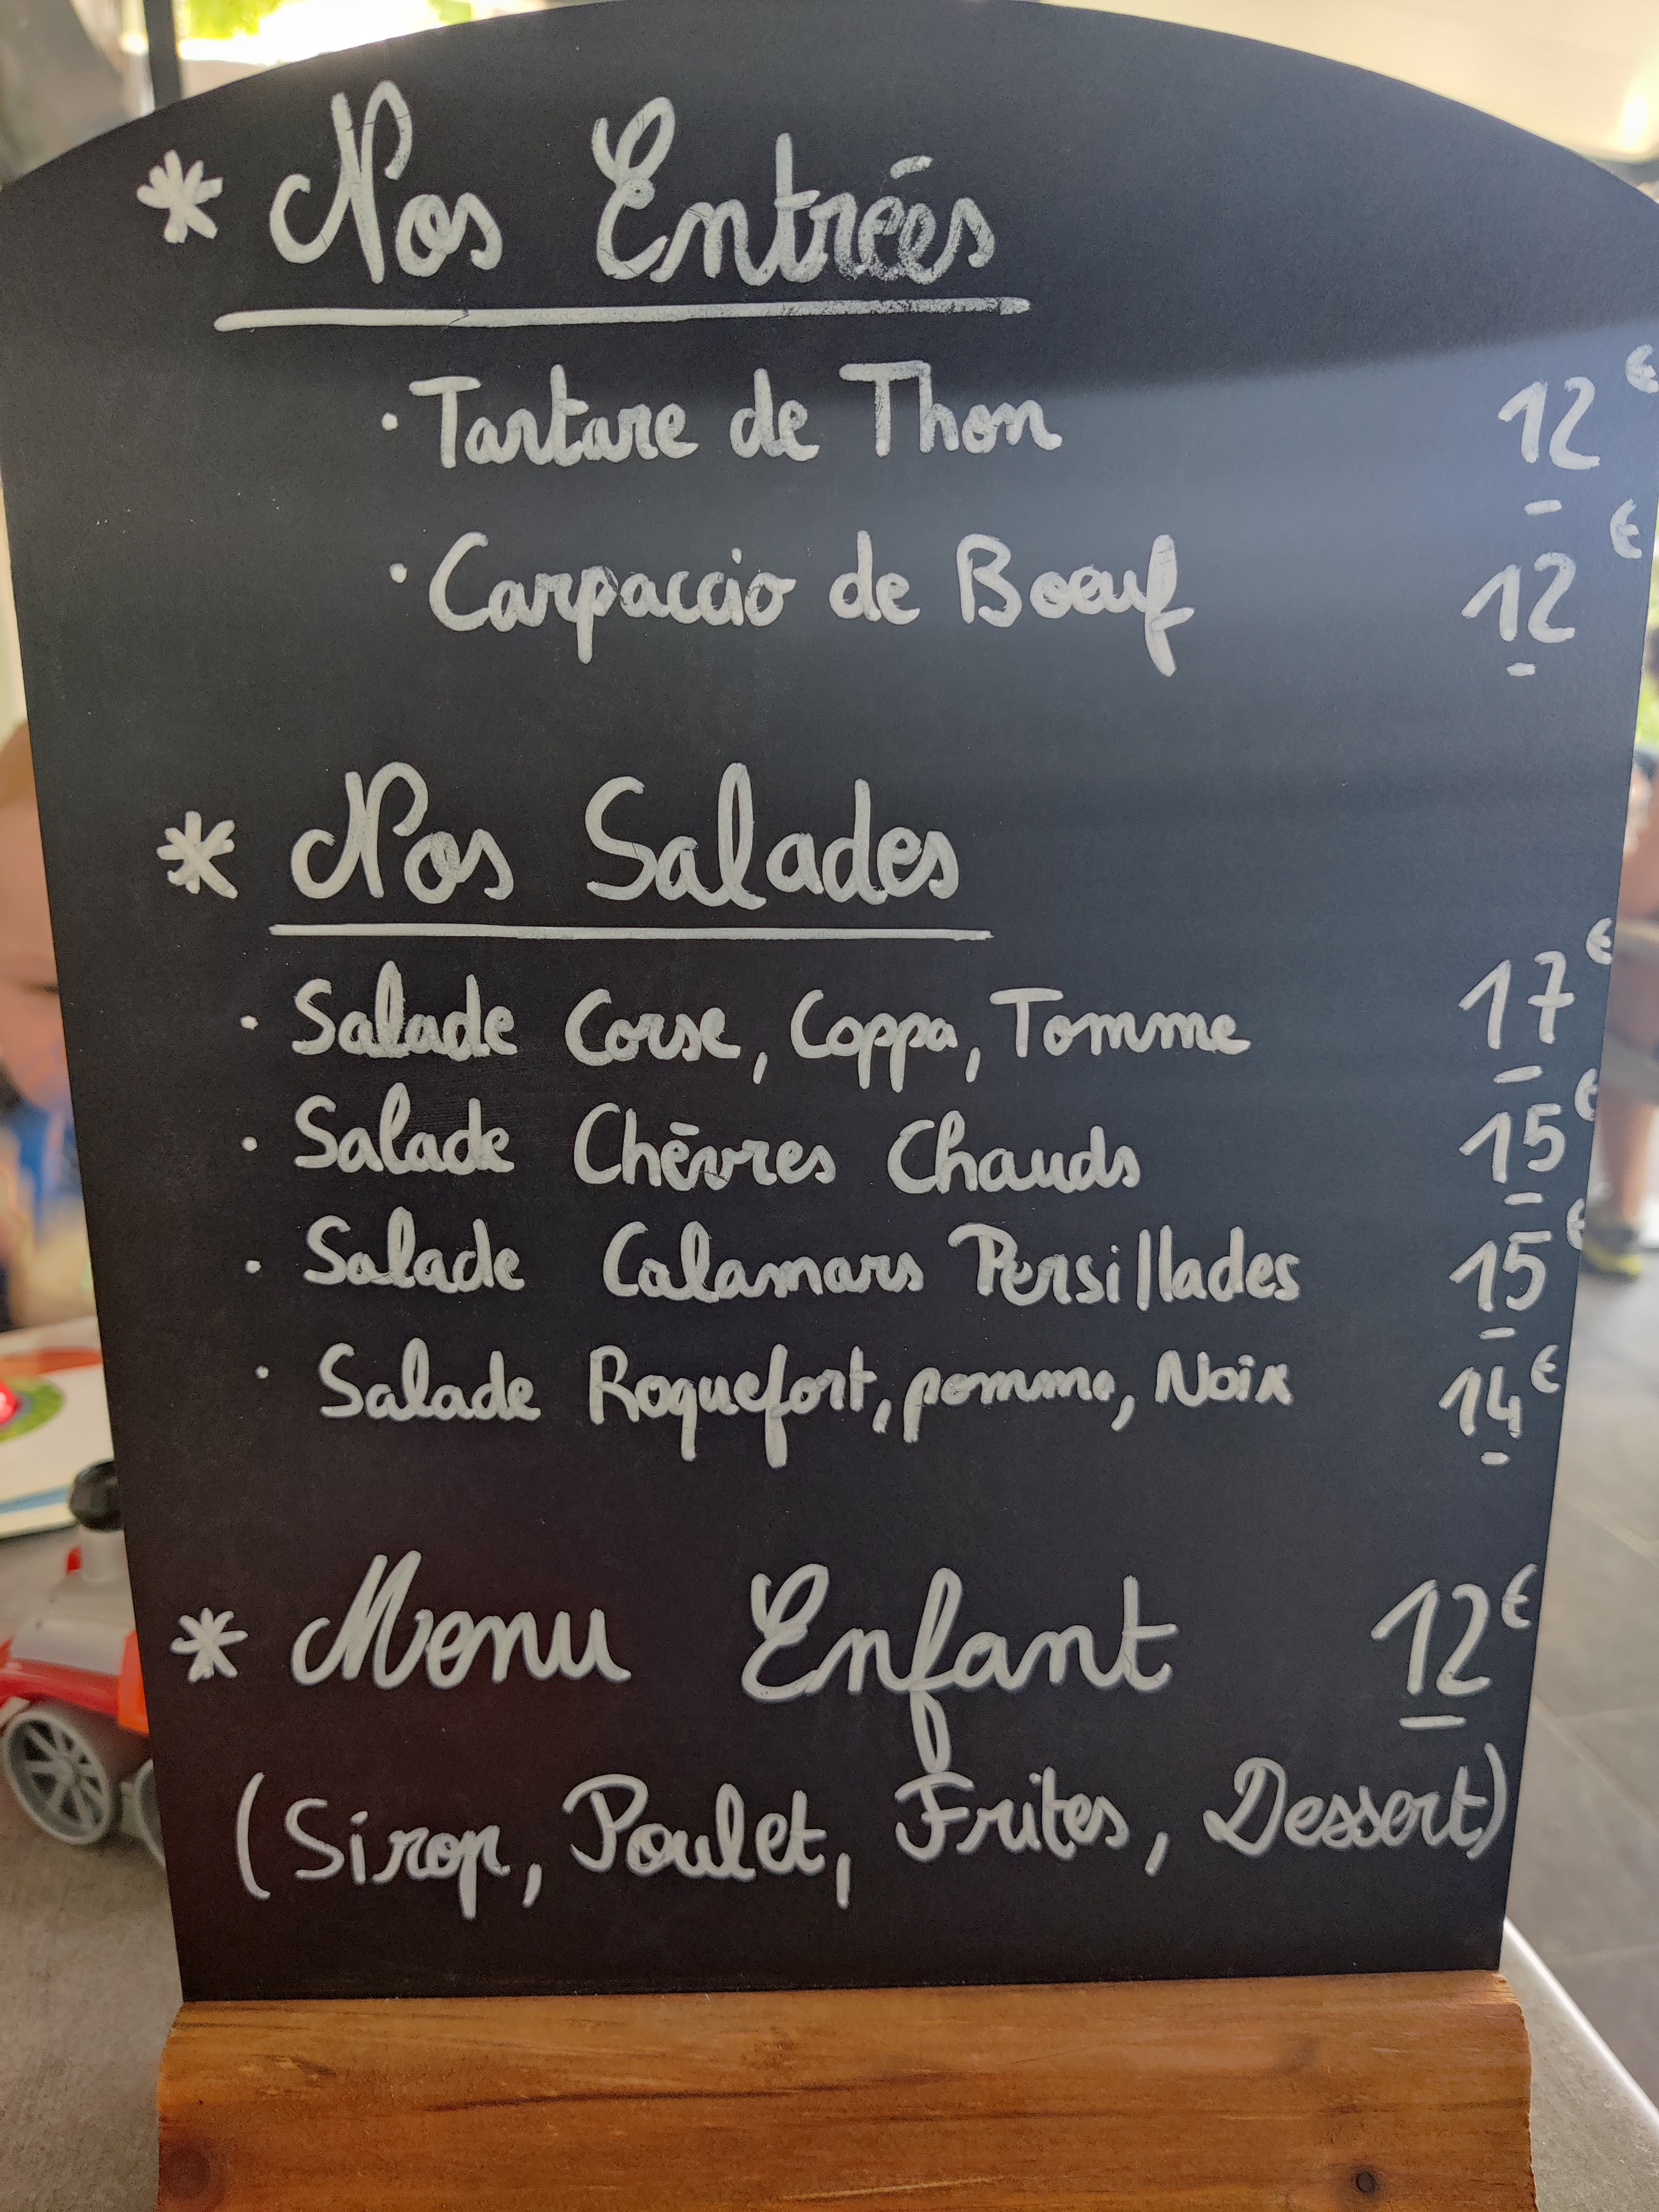 * Nos Entrées
· Tartare de Thon 12€
· Carpaccio de Bœuf 12€
* Nos Salades
· Salade Corse, Coppa, Tomme 17€
· Salade Chèvres Chauds 15€
· Salade Calamars Persillades 15€
· Salade Roquefort, pomme, Noix 14€
* Menu Enfant 12€
(Sirop, Poulet, Frites, Dessert)